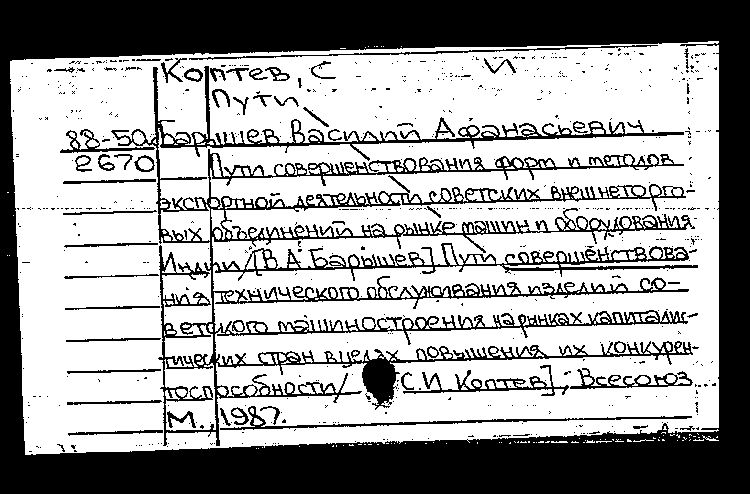 Коптев, С И
Пути
88-50 Барышев, Василий Афанасьевич.
2670 Пути совершенствования форм и методов
экспортной деятельности советских внешнеторго-
вых объединений на рынке машин и оборудования
Индии/[В.А. Барышев]. Пути совершенствова-
ния технического обслуживания изделий со-
ветского машиностроения на рынках капиталис-
тических стран в целях повышения их конкурен-
тоспособности/ С.И. Коптев]; Всесоюз
М., 1987.